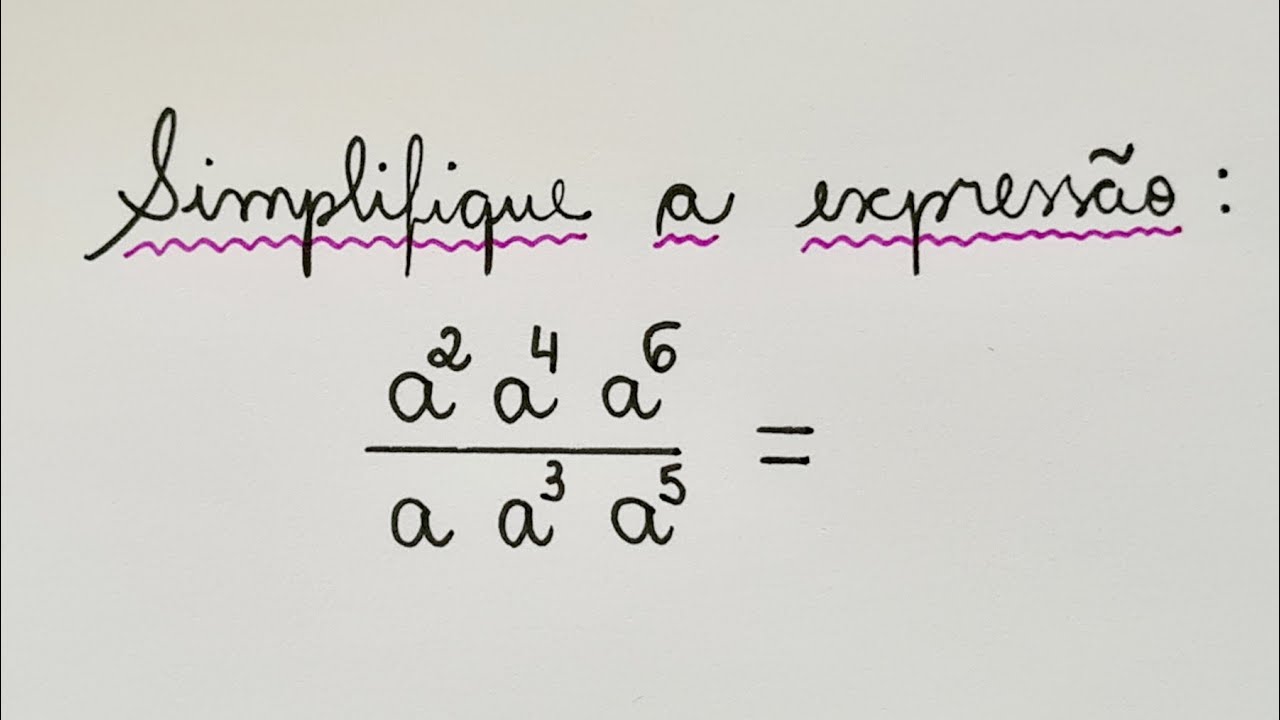 Simplifique a expressão:
a² a⁴ a⁶
=
a a³ a⁵